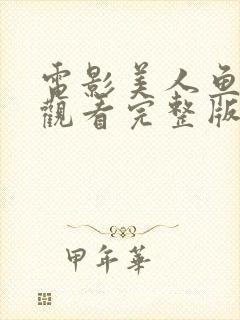 電影美人魚
觀看完整版
甲年華